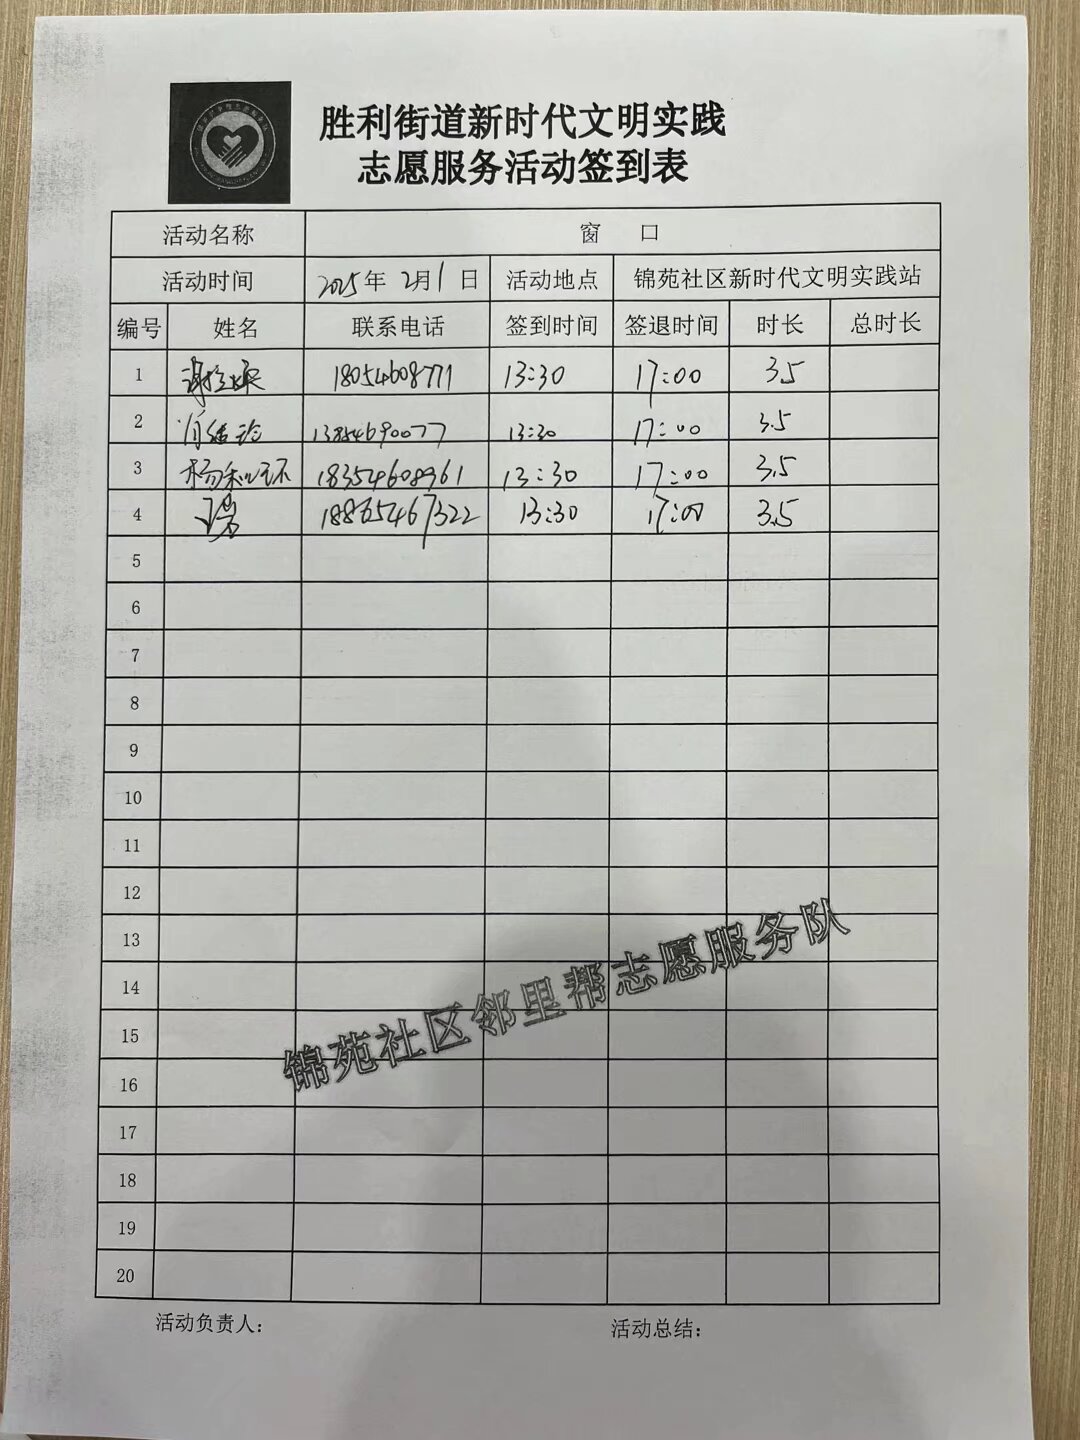 胜利街道新时代文明实践
志愿服务活动签到表
活动名称 窗 口
活动时间 2025年 2月1日 活动地点 锦苑社区新时代文明实践站
编号 姓名 联系电话 签到时间 签退时间 时长 总时长
1 18054608771 13:30 17:00 3.5
2 13854690077 13:30 17:00 3.5
3 18354608961 13:30 17:00 3.5
4 18865467322 13:30 17:00 3.5
5
6
7
8
9
10
11
12
13
14
15
16
17
18
19
20
锦苑社区邻里帮志愿服务队
活动负责人： 活动总结：